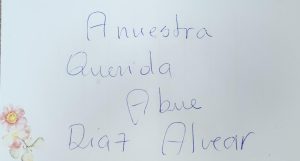 A nuestra
Querida
Abue
Diaz Alvear